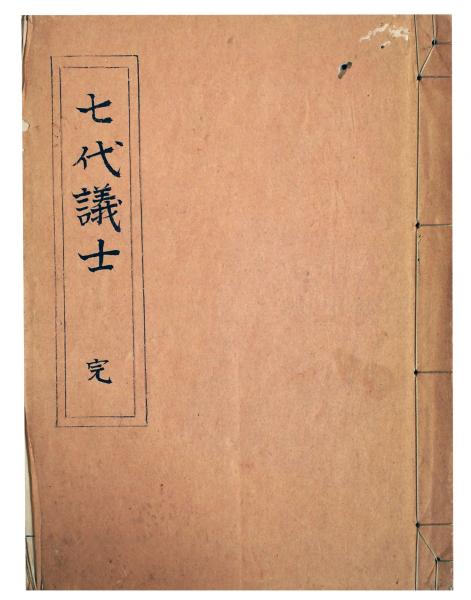 七代議士
完